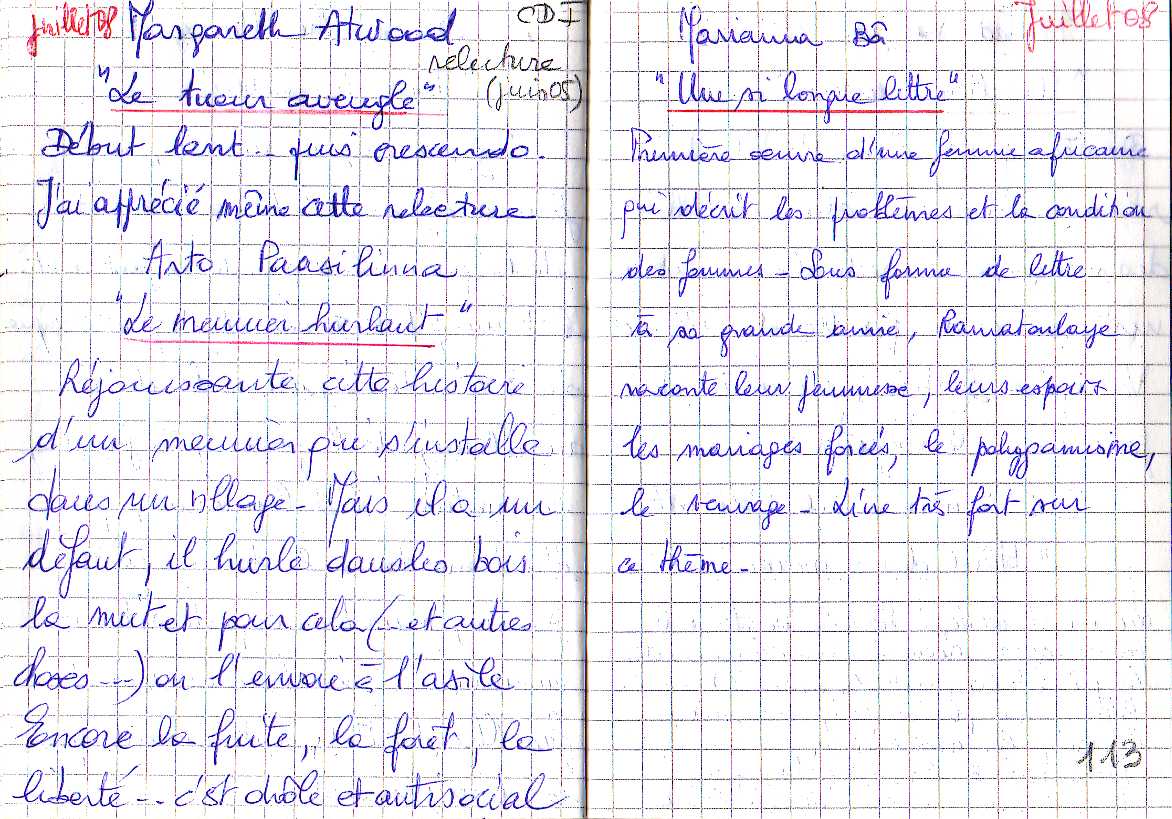 juillet 08 Margareth Atwood CD I
relecture
(juin 05)
"Le tueur aveugle"
Début lent.. puis crescendo.
J'ai apprécié même cette relecture
Arto Paasilinna
"Le meunier hurlant"
Réjouissante cette histoire
d'un meunier qui s'installe
dans un village - Mais il a un
défaut, il hurle dans les bois
la nuit et pour cela (- et autres
choses ---) on l'envoie à l'asile
Encore la fuite, la forêt, la
liberté -- c'est drôle et antisocial
Juillet 08
Marianna Bâ
"Une si longue lettre"
Première oeuvre d'une femme africaine
qui décrit les problèmes et la condition
des femmes - Sous forme de lettre
à sa grande amie, Ramatoulaye
raconte leur jeunesse, leurs espoirs
les mariages forcés, le polygamisme,
le veuvage - Livre très fort sur
ce thème -
113